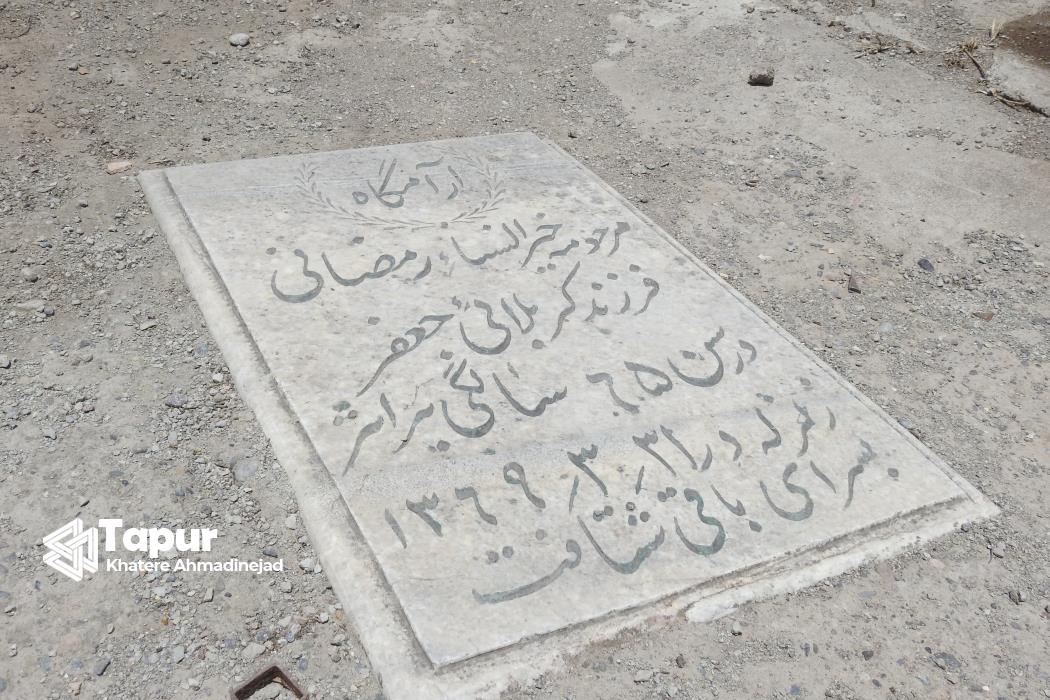 آرامگاه
مرحومه خیرالنساء رمضانی
فرزند کربلائی جعفر
در سن ۶۵ سالگی بر اثر
زلزله در ۳۱/۳/۱۳۶۹
بسرای باقی شتافت
Tapur
Khatere Ahmadinejad